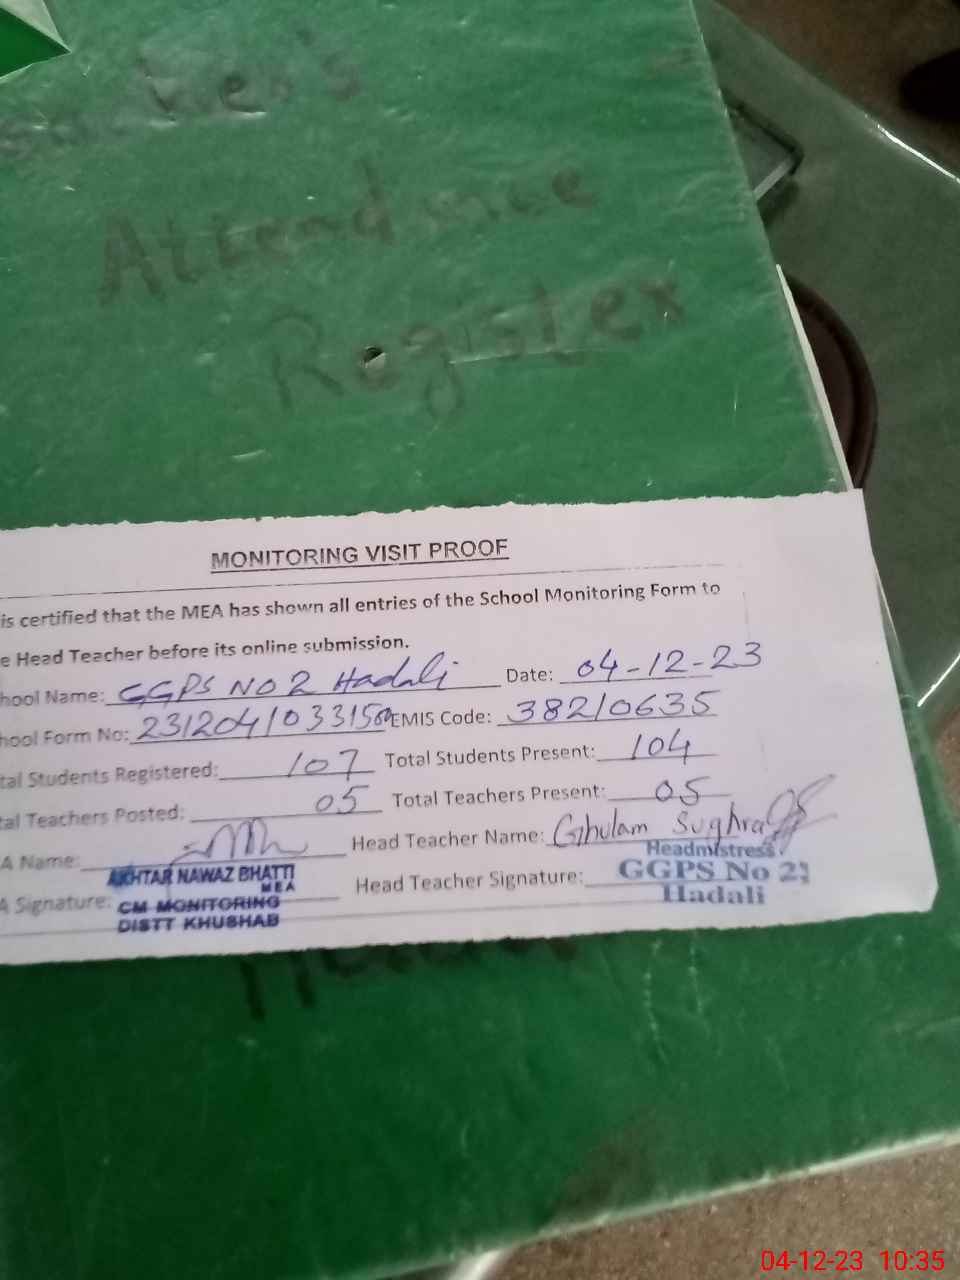 Attendance
Register
MONITORING VISIT PROOF
is certified that the MEA has shown all entries of the School Monitoring Form to
e Head Teacher before its online submission.
hool Name: GGPS NO 2 Hadali Date: 04-12-23
hool Form No: EMIS Code: 38210635
tal Students Registered: 107 Total Students Present: 104
tal Teachers Posted: 05 Total Teachers Present: 05
A Name: Head Teacher Name: Ghulam Sughra
AKHTAR NAWAZ BHATTI
MEA
Headmistress
GGPS No 2
Hadali
A Signature: Head Teacher Signature:
CM MONITORING
DISTT KHUSHAB
04-12-23 10:35